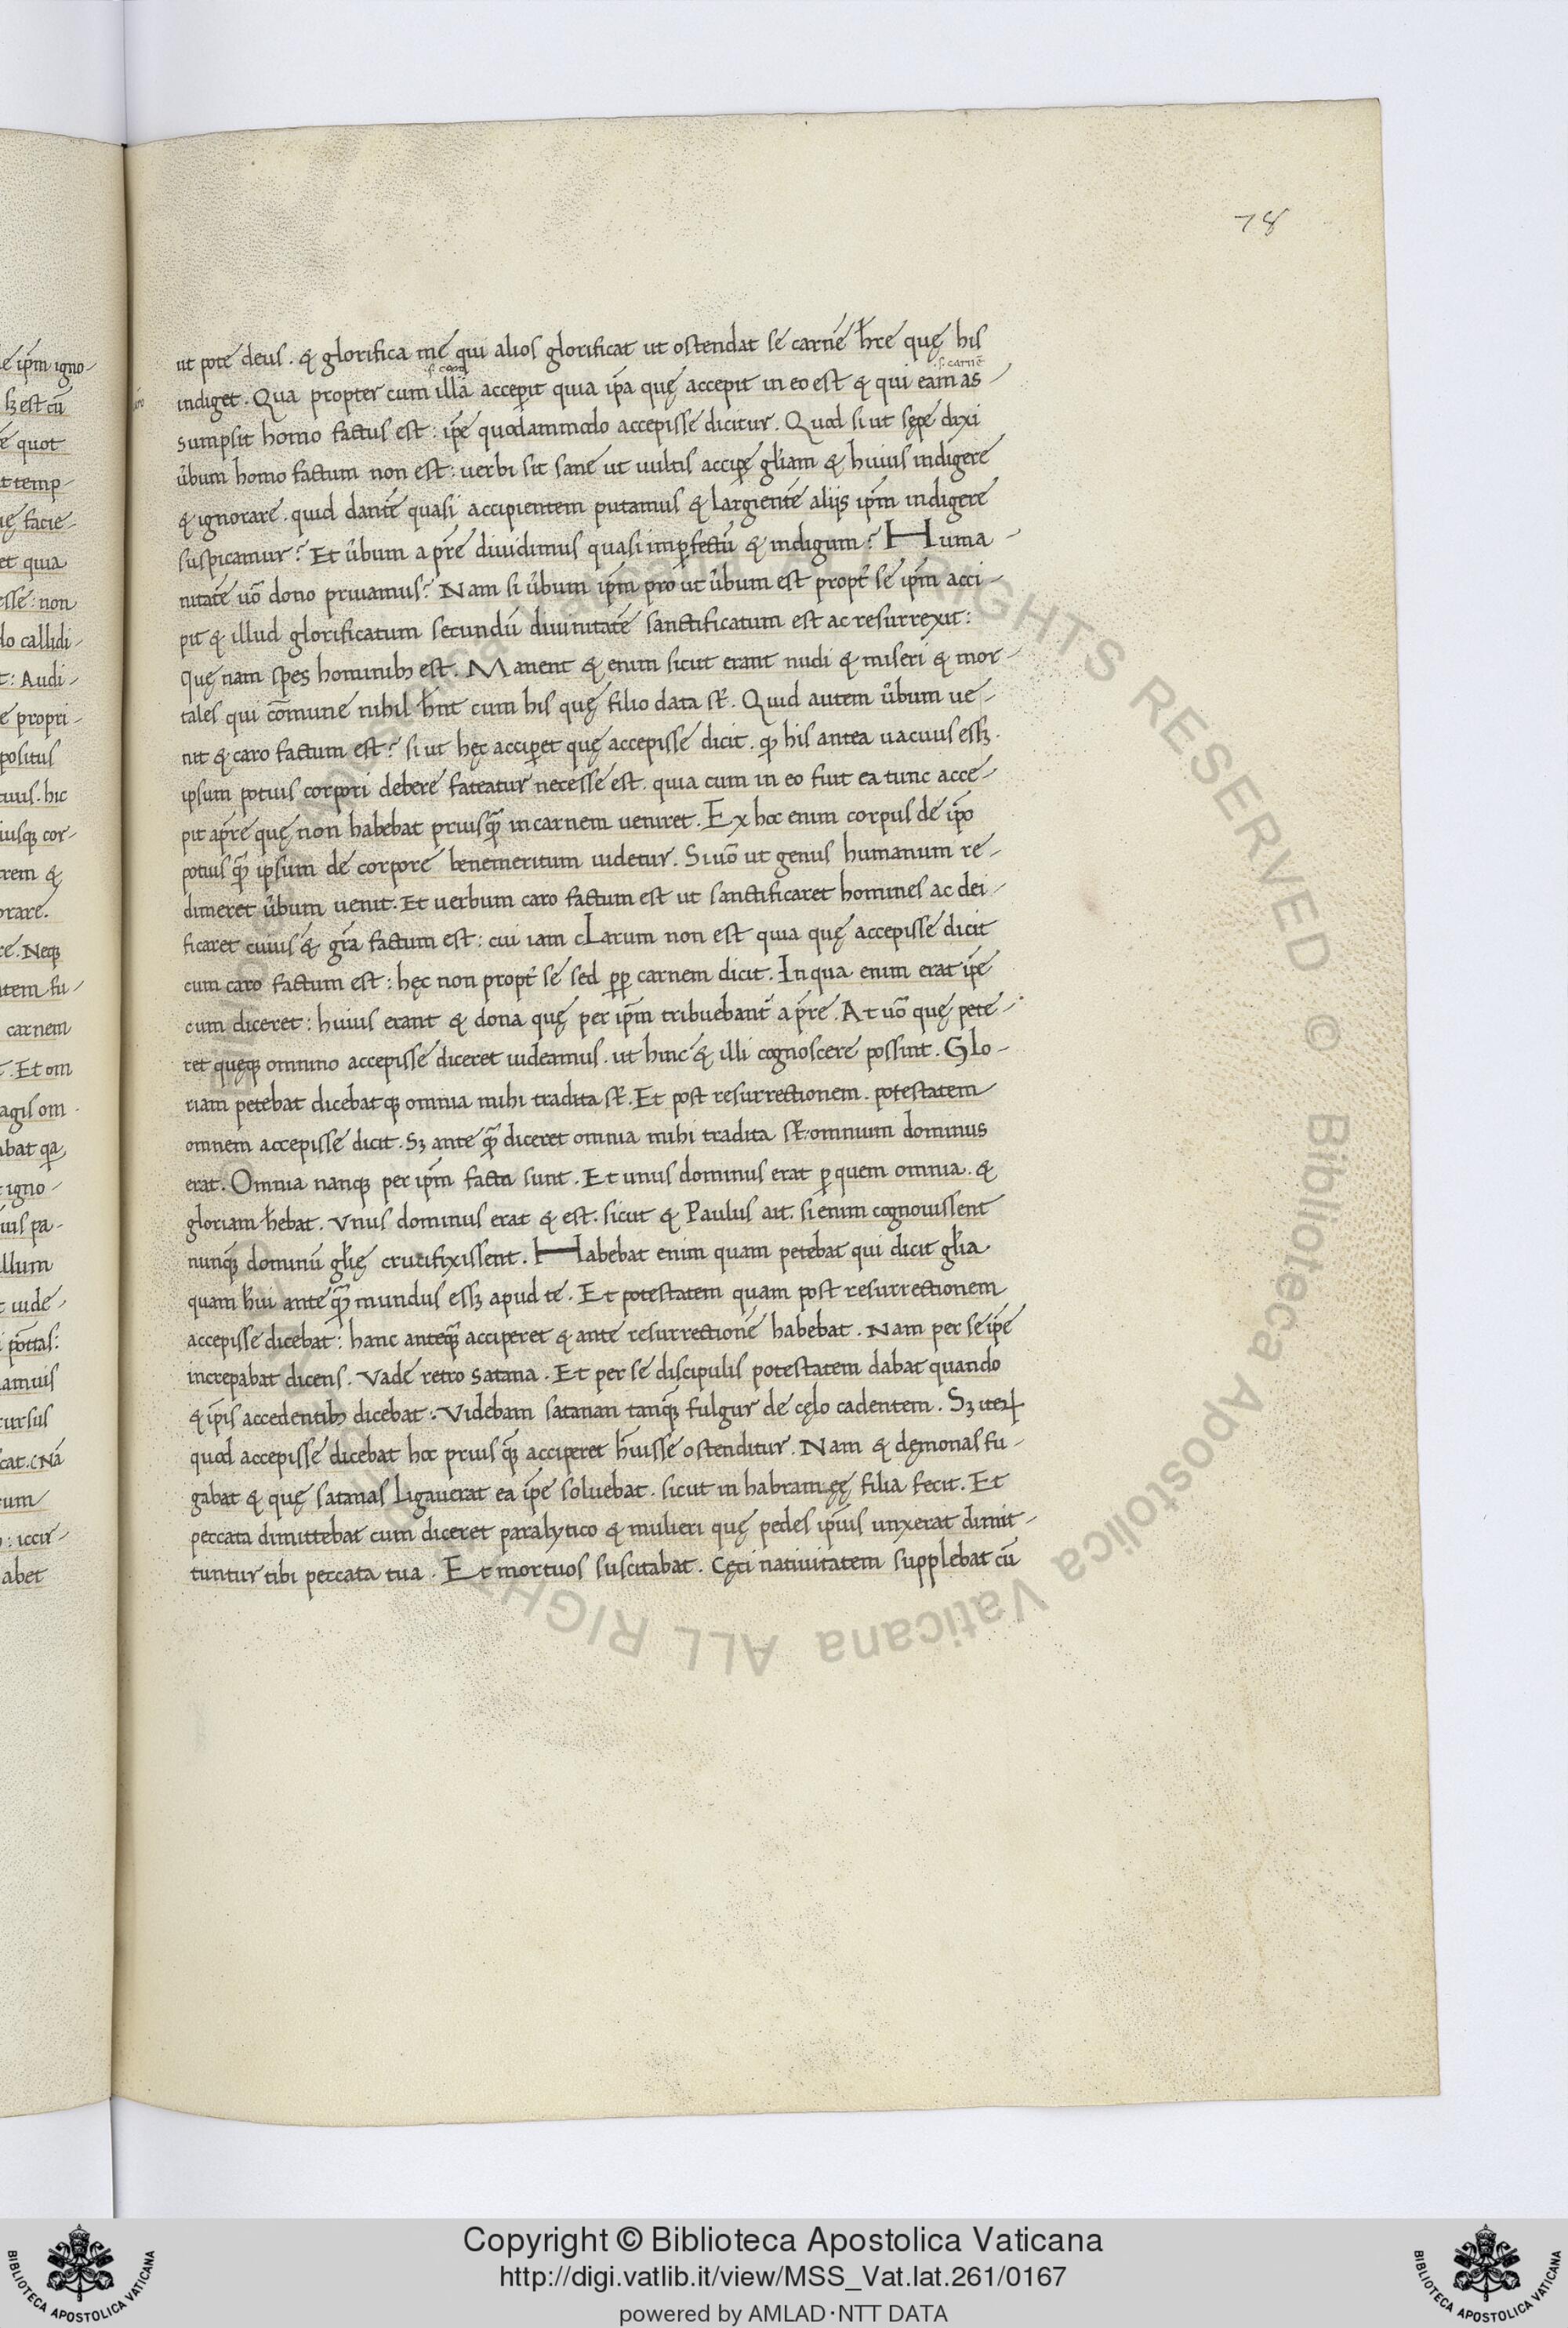 78
ut pote deus. & glorifica me qui alios glorificat ut ostendat se carnē hr̄e quę his
indiget. Qua propter cum illā accepit quia ip̄a quę accepit in eo est & qui eam as-
.s. carnē
sumpsit homo factus est: ip̄e quodammodo accepisse dicitur. Quod si ut sępe dixi
ūbum homo factum non est: uerbi sit sane ut uultis accipe gl̄iam & huius indigere
& ignorare. quid dantē quasi accipientem putamus & largientē aliis ip̄m indigere
suspicamur? Et ūbum a pr̄e diuidimus quasi imꝑfectū & indigum? Huma-
nitatē uō dono priuamus? Nam si ūbum ip̄m pro ut ūbum est propt̄ se ip̄m acci-
pit & illud glorificatum secundū diuinitatē sanctificatum est ac resurrexit:
quę nam spes hominib; est. Manent & enim sicut erant nudi & miseri & mor-
tales qui com̄une nihil hn̄t cum his quę filio data st̄. Quid autem ūbum ue-
nit & caro factum est? si ut hęc acciperet quę accepisse dicit. qd̄ his antea uacuus ess;.
ipsum potius corpori debere fateatur necesse est. quia cum in eo fuit ea tunc acce-
pit a pr̄e quę non habebat priusq̄ in carnem ueniret. Ex hoc enim corpus de ip̄o
potius q̄ ipsum de corpore benemeritum uidetur. Si uō ut genus humanum re-
dimeret ūbum uenit. Et uerbum caro factum est ut sanctificaret homines ac dei-
ficaret cuius & gr̄a factum est: cui iam clarum non est quia quę accepisse dicit
cum caro factum est: hęc non propt̄ se sed ꝓꝑ carnem dicit. In qua enim erat ip̄e
cum diceret: huius erant & dona quę per ip̄m tribuebant̄ a pr̄e. At uō quę pete-
ret quęq; omnino accepisse diceret uideamus. ut hinc & illi cognoscere possint. Glo-
riam petebat dicebatq; omnia mihi tradita st̄. Et post resurrectionem. potestatem
omnem accepisse dicit. S; ante q̄ diceret omnia mihi tradita st̄: omnium dominus
erat. Omnia nanq; per ip̄m facta sunt. Et unus dominus erat ꝑ quem omnia. &
gloriam hēbat. Vnus dominus erat & est. sicut & Paulus ait. si enim cognouissent
nunq̄ dominū gl̄ię crucifixissent. Habebat enim quam petebat qui dicit gl̄ia
quam hūi ante q̄ mundus ess; apud te. Et potestatem quam post resurrectionem
accepisse dicebat: hanc anteq̄ acciperet & ante resurrectionē habebat. Nam per se ip̄e
increpabat dicens. Vade retro satana. Et per se discipulis potestatem dabat quando
& ip̄is accedentib; dicebat: Videbam satanan tanq̄ fulgur de cęlo cadentem. S; iteꝝ
quod accepisse dicebat hoc prius q̄ acciperet hūisse ostenditur. Nam & dęmonas fu-
gabat & quę satanas ligauerat ea ip̄e soluebat. sicut in habramęę filia fecit. Et
peccata dimittebat cum diceret paralytico & mulieri quę pedes ip̄ius unxerat dimit-
tuntur tibi peccata tua. Et mortuos suscitabat. Cęci natiuitatem supplebat cū
Copyright © Biblioteca Apostolica Vaticana
http://digi.vatlib.it/view/MSS_Vat.lat.261/0167
powered by AMLAD·NTT DATA